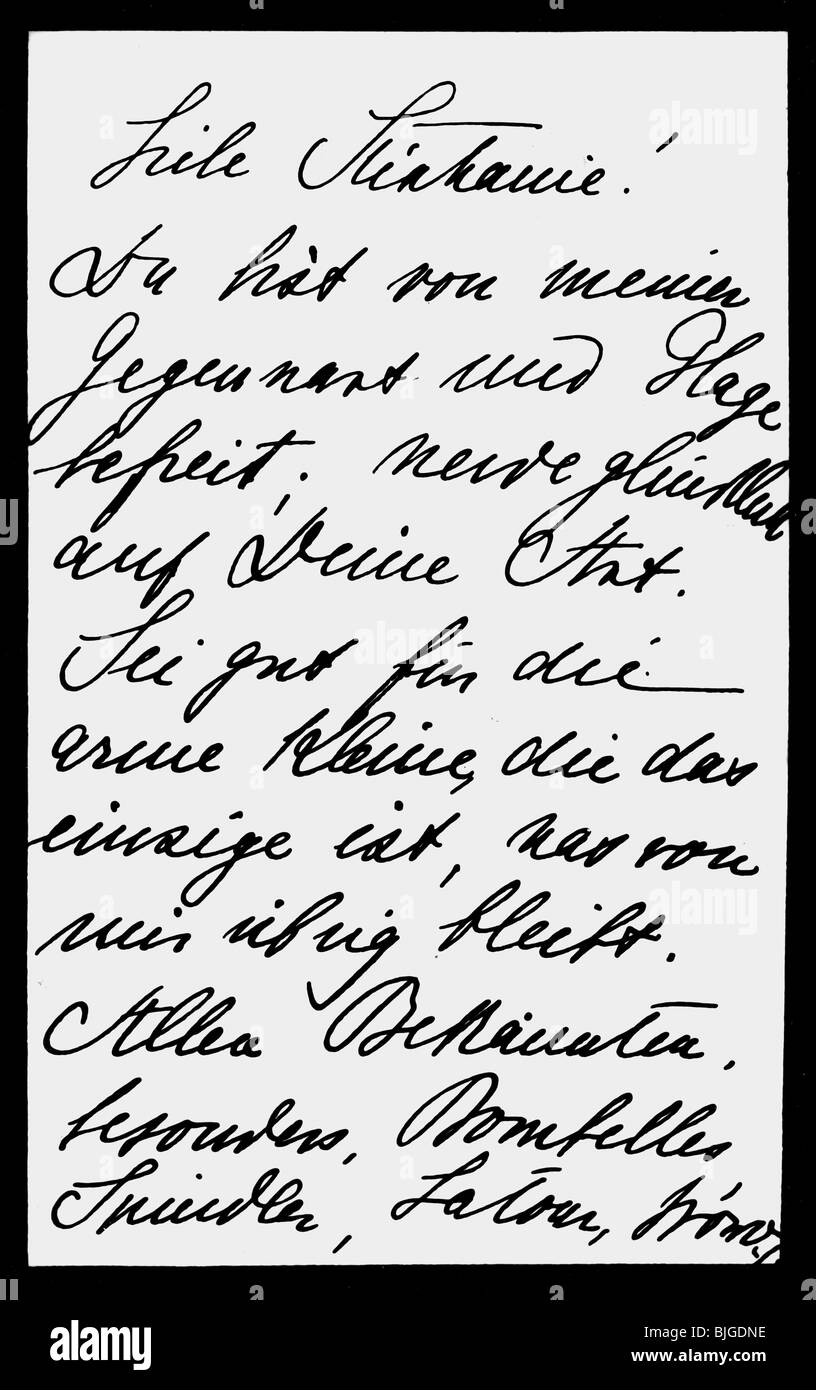 Liebe Stephanie!
Du bist von meiner
Gegenwart und Plage
befreit; werde glücklich
auf Deine Art.
Sei gut für die
arme Kleine, die das
einzige ist, was von
mir übrig bleibt.
Allen Bekannten,
besonders, Bombelles
Spindler, Latour, Wowo,
alamy
Image ID: BJGDNE
www.alamy.com